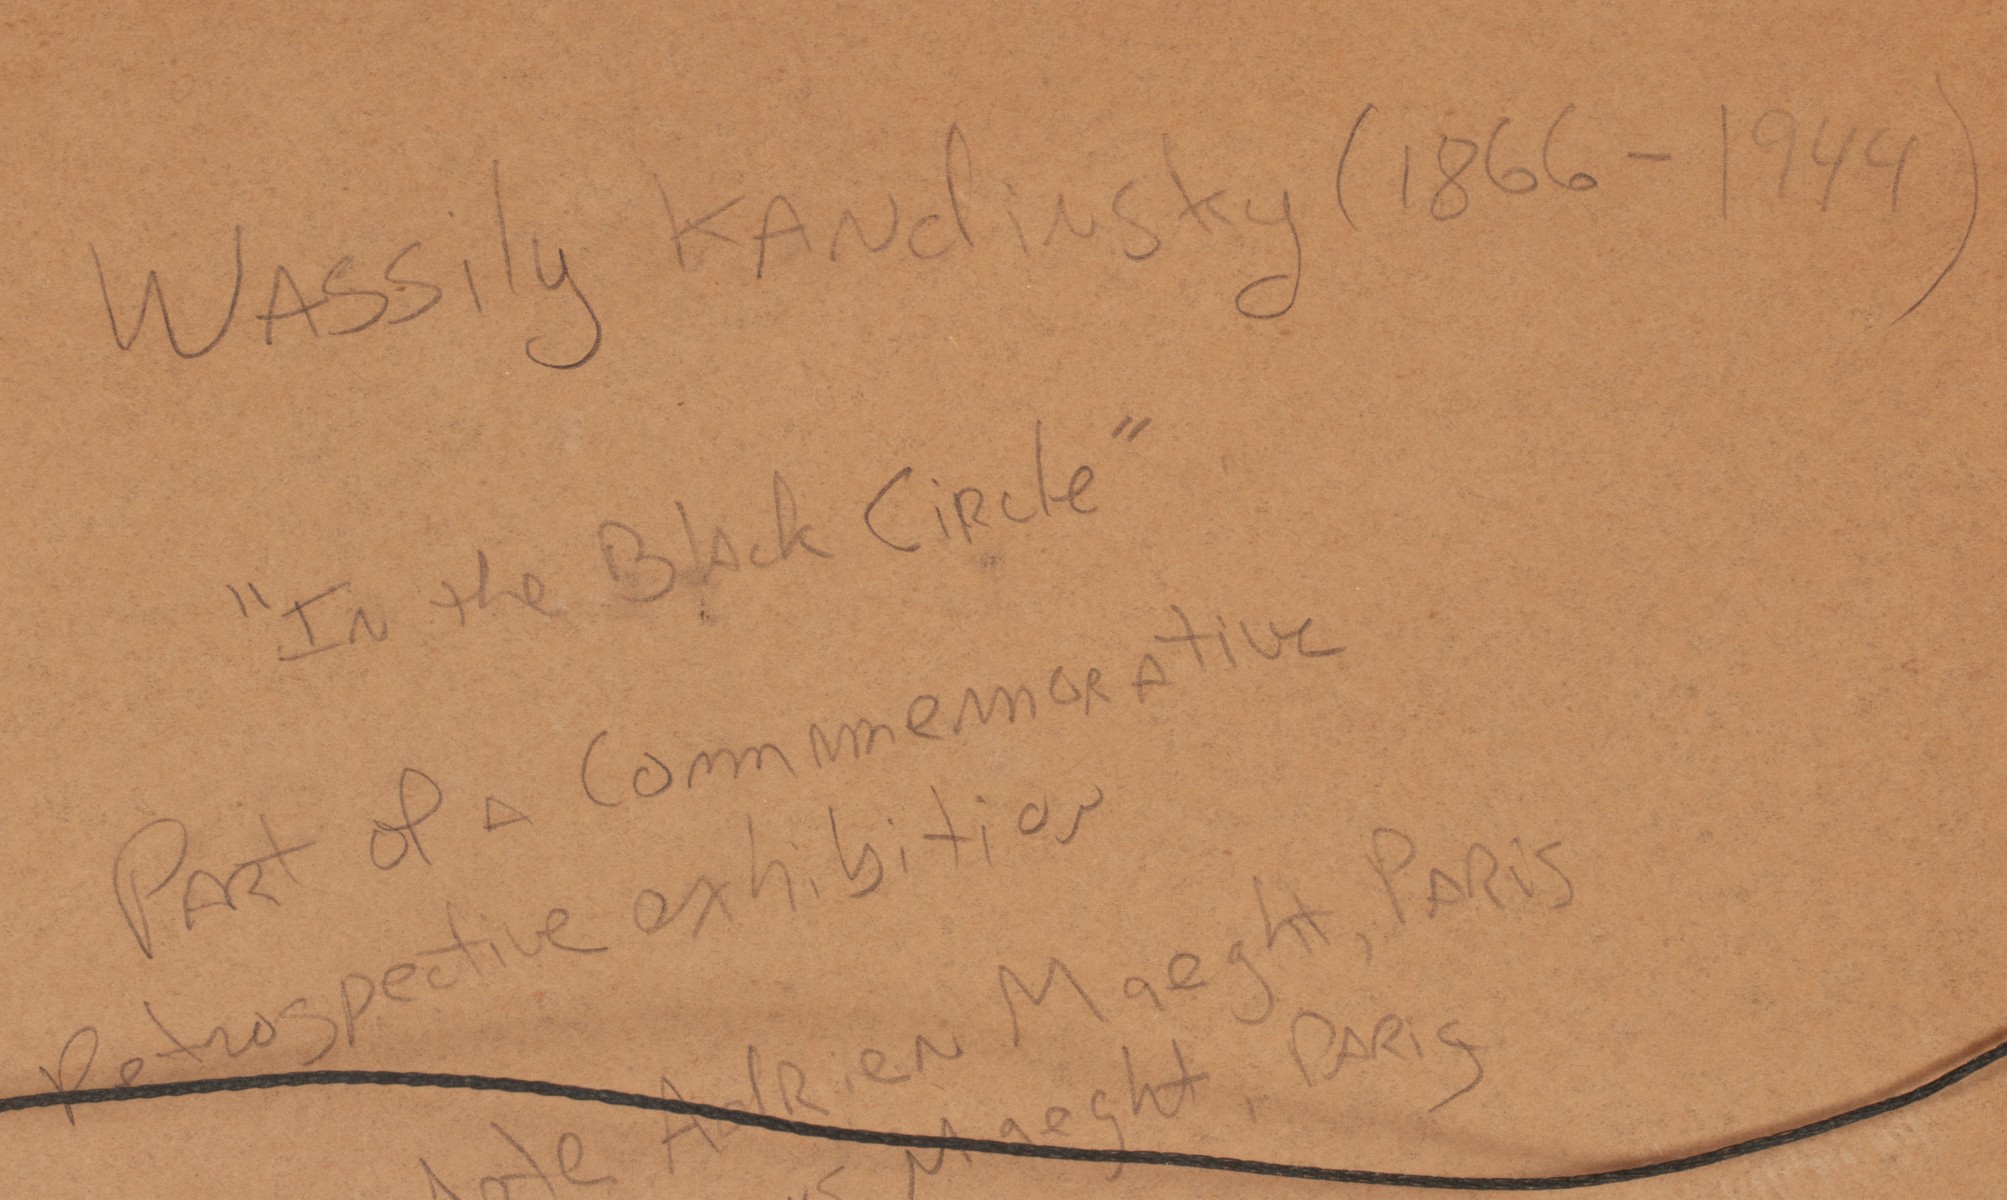 Wassily Kandinsky (1866-1944)
"In the Black Circle"
Part of a Commmemorative
Retrospective exhibition
Adrien Maeght, Paris
Maeght, Paris